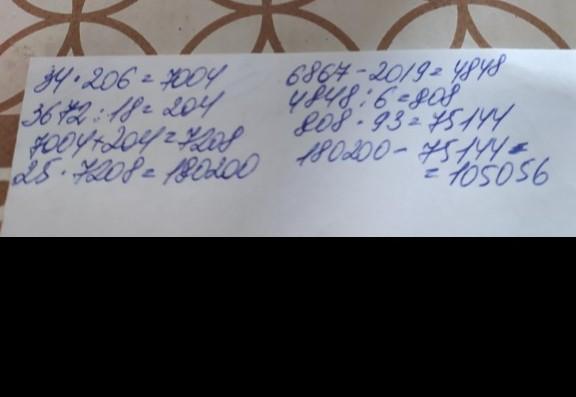 34 · 206 = 7004
3672 : 18 = 204
7004 + 204 = 7208
25 · 7208 = 180200
6867 - 2019 = 4848
4848 : 6 = 808
808 · 93 = 75144
180200 - 75144 =
= 105056